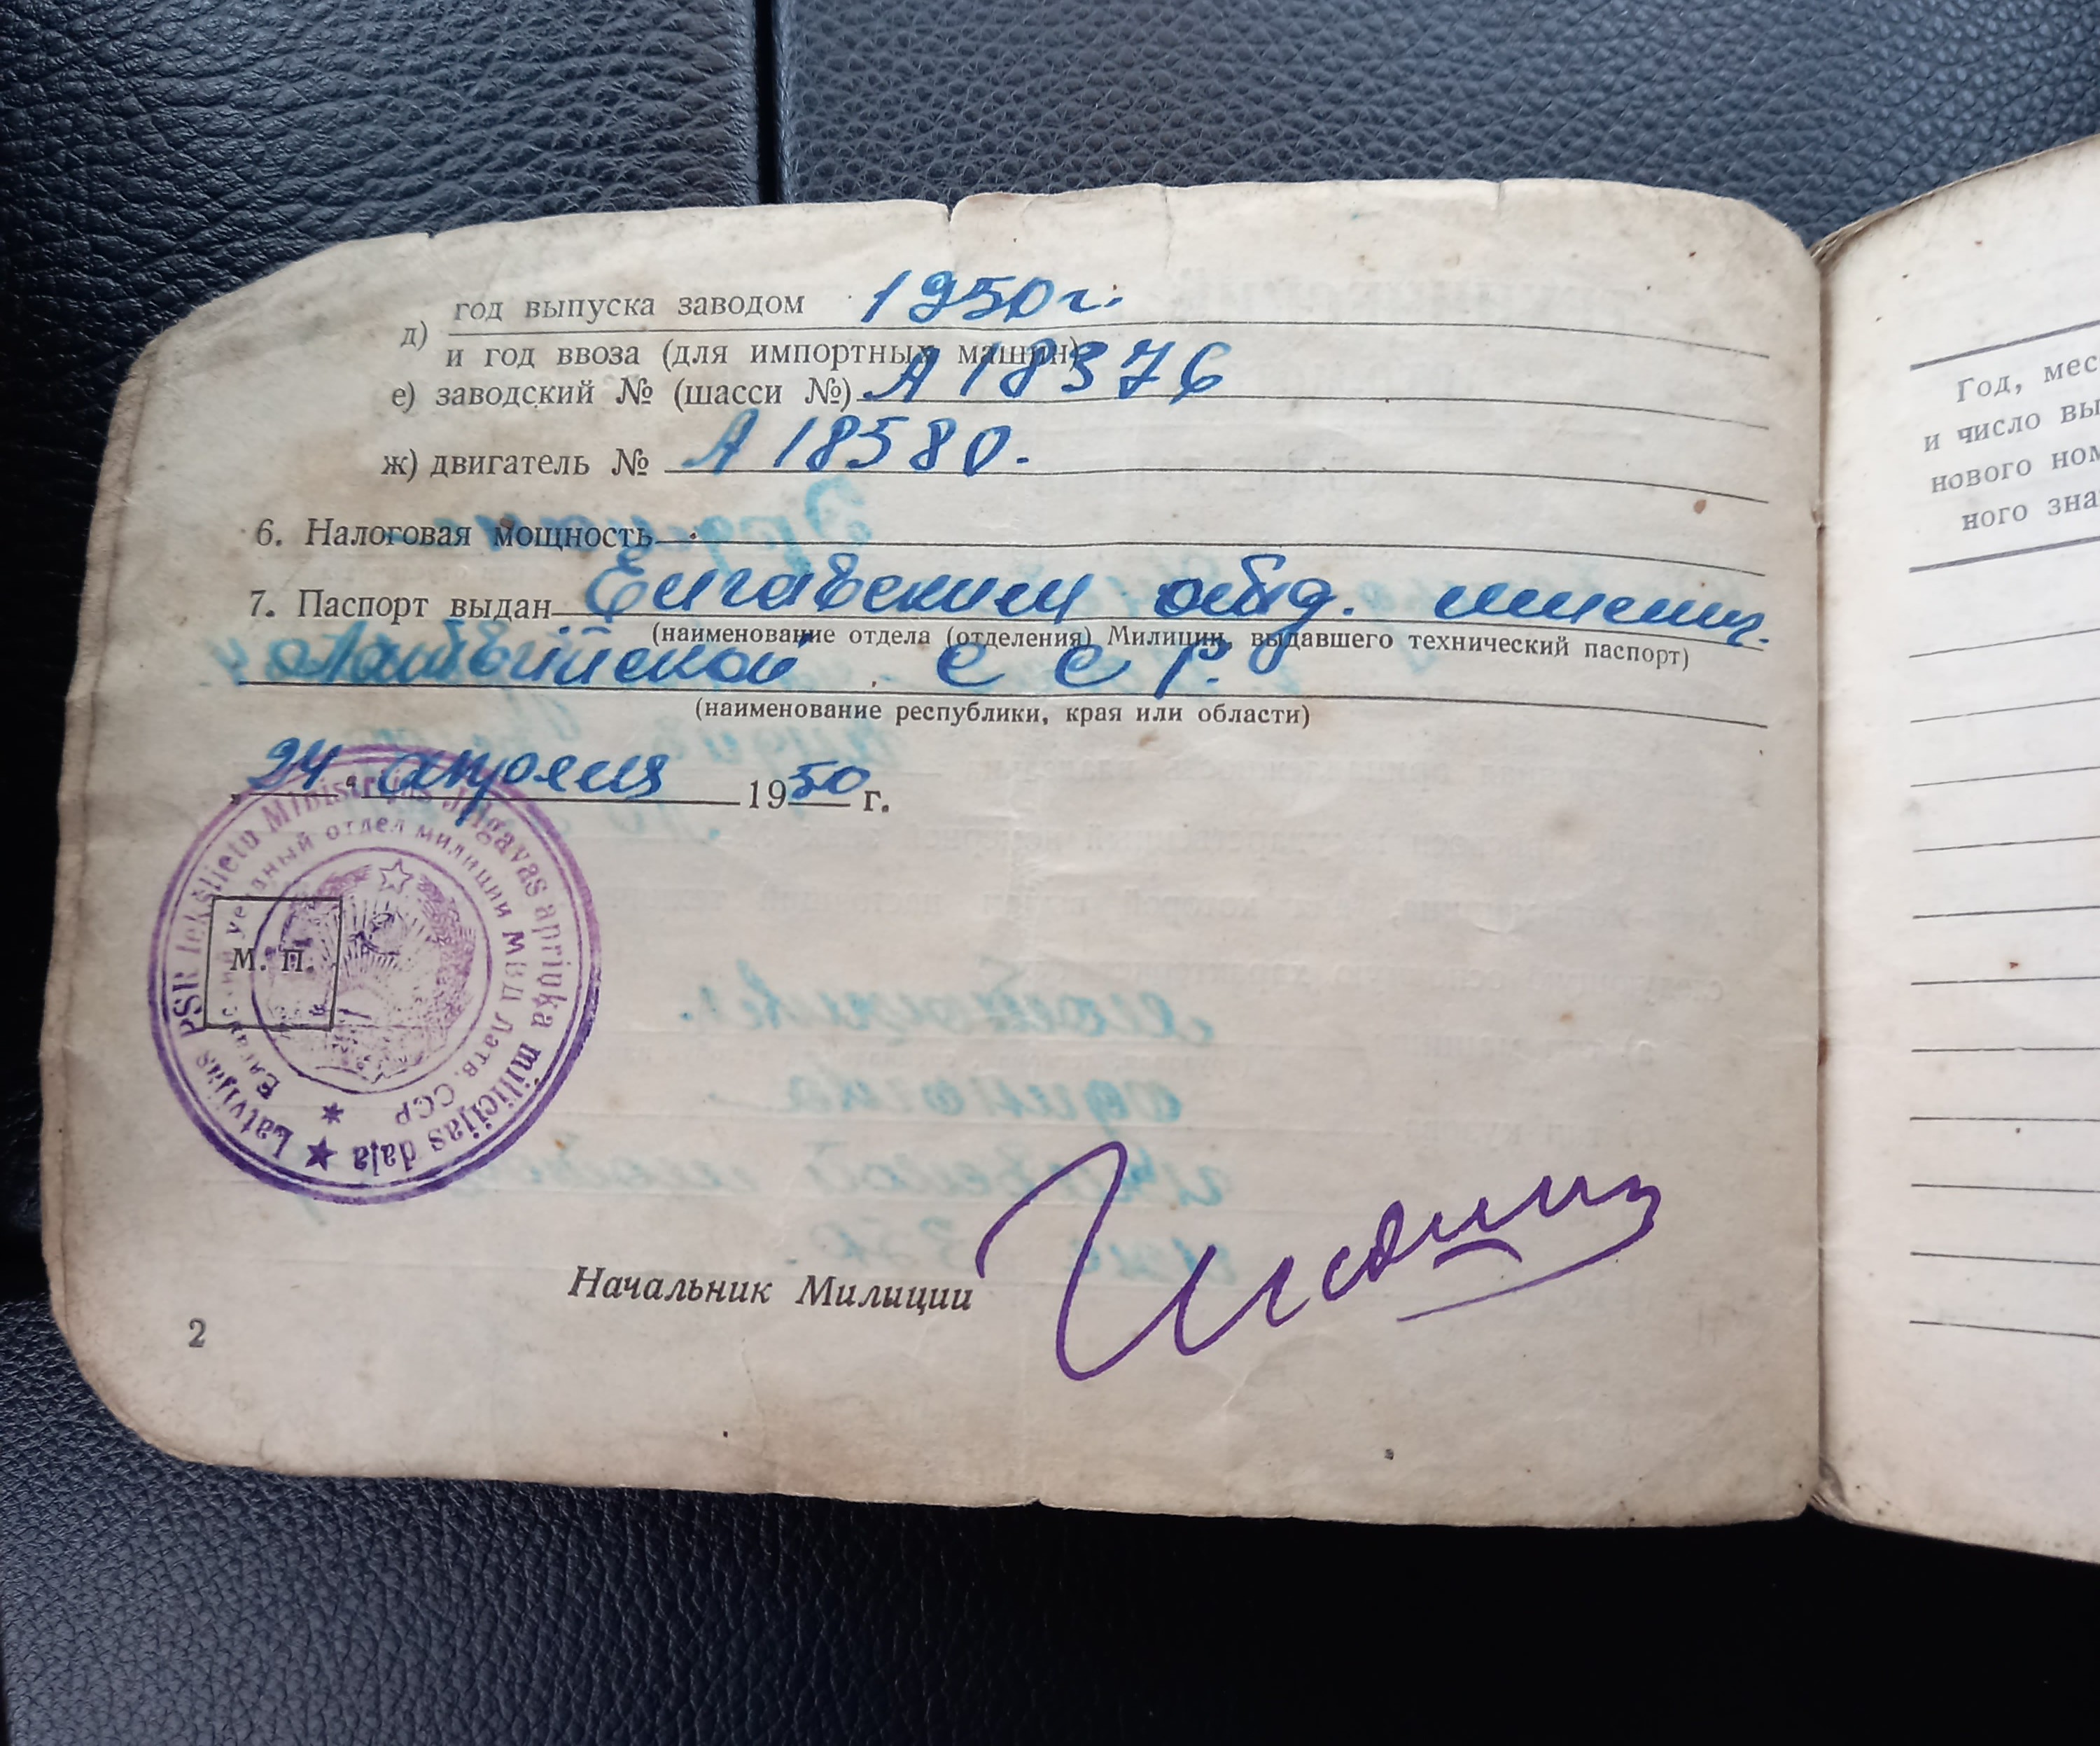 год выпуска заводом 1950 г.
д)
и год ввоза (для импортных машин)
е) заводский № (шасси №) А 18376
ж) двигатель № А 18580.
6. Налоговая мощность
7. Паспорт выдан Елгавским отд. милиц.
(наименование отдела (отделения) Милиции, выдавшего технический паспорт)
Латвийской С С Р.
(наименование республики, края или области)
„24“ апреля 1950 г.
Latvijas PSR Iekšlietu Ministrijas Jelgavas apriņķa milicijas daļa
Елгавский уездный отдел милиции МВД Латв. ССР
М. П.
Начальник Милиции
2
Год, мес
и число вы
нового ном
ного зна